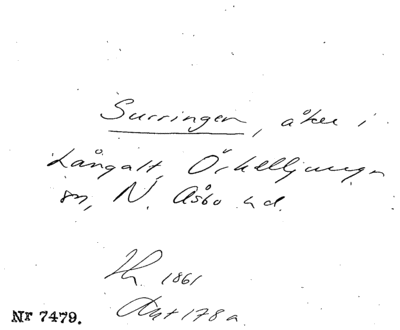 Surringen, åker i
Långalt, Örkelljunga
sn, N. Åsbo hd.
Hr. 1861
Akt 178 a
Nr 7479.